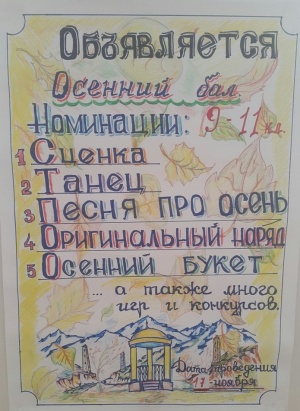 Объявляется
Осенний бал.
Номинации: 9-11 кл.
1 Сценка
2 Танец
3 Песня про осень
4 Оригинальный наряд
5 Осенний букет
... а также много
игр и конкурсов.
Дата проведения
17 ноября